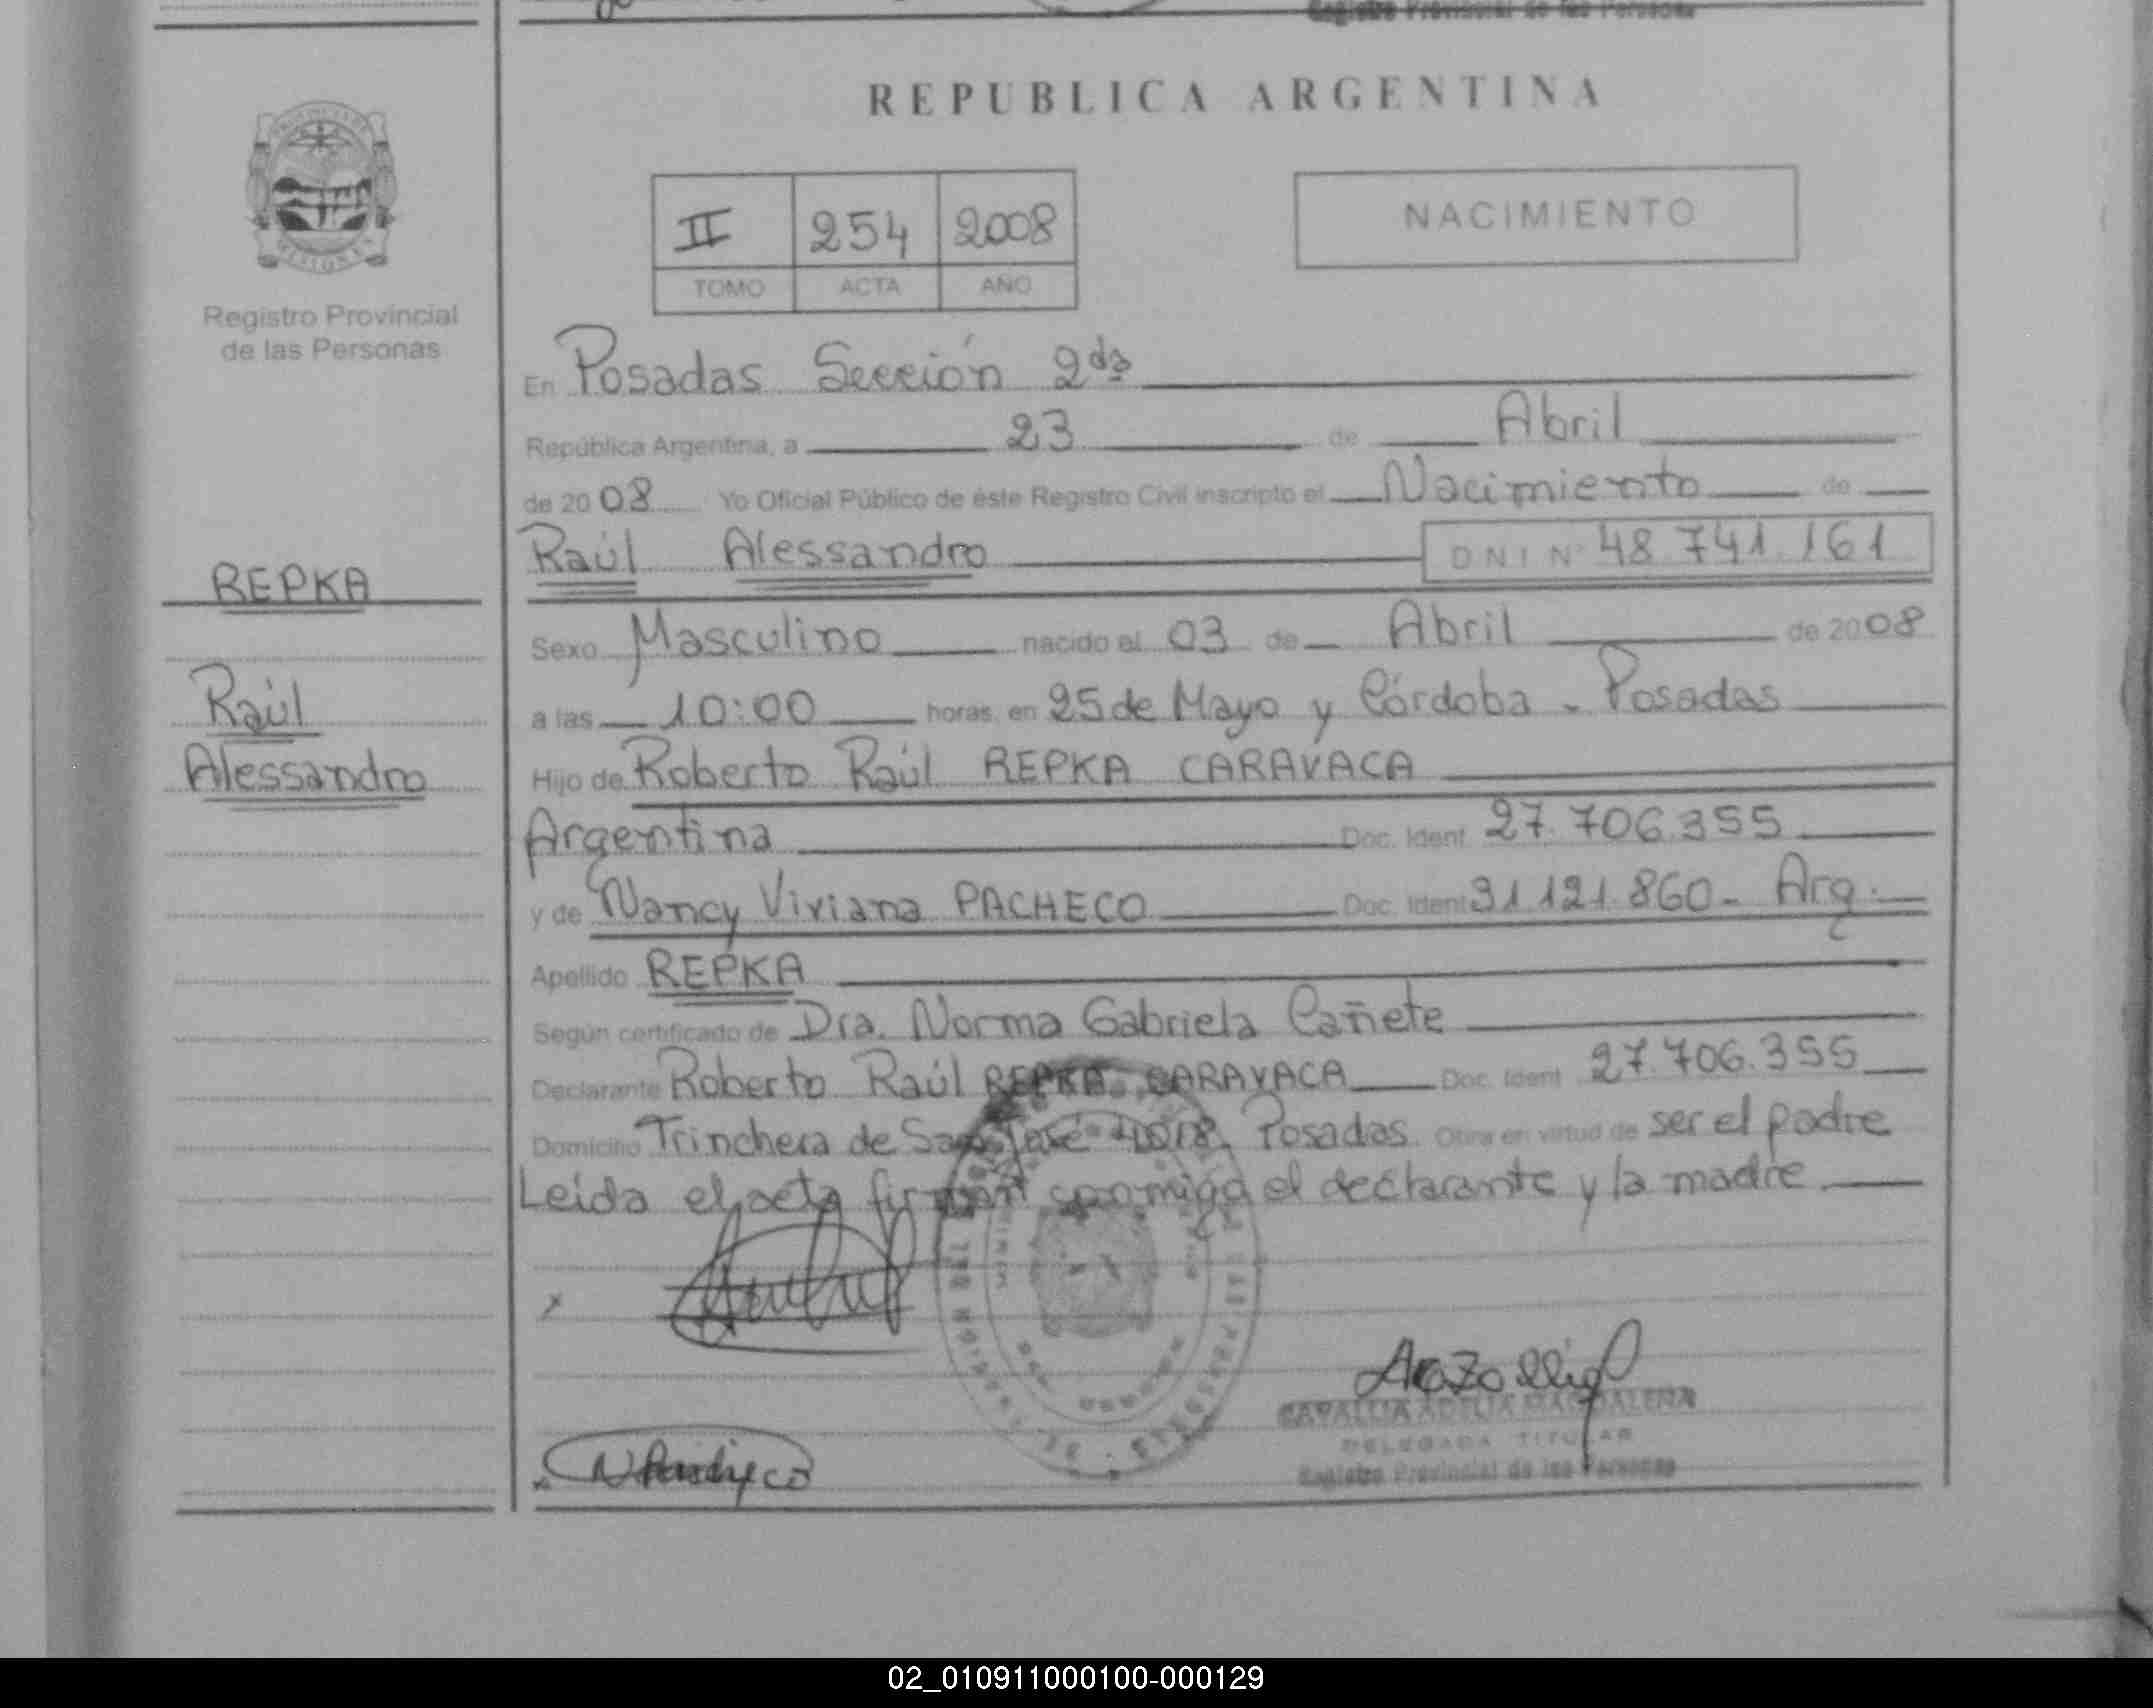 Registro Provincial de las Personas
REPUBLICA ARGENTINA
II 254 2008
TOMO ACTA AÑO
NACIMIENTO
Registro Provincial
de las Personas
En Posadas Sección 2da
República Argentina, a 23 de Abril
de 2008 Yo Oficial Público de éste Registro Civil inscripto el Nacimiento de
Raúl Alessandro DNI Nº 48.741.161
REPKA
Raúl
Alessandro
Sexo Masculino nacido el 03 de Abril de 2008
a las 10:00 horas, en 25 de Mayo y Córdoba - Posadas
Hijo de Roberto Raúl REPKA CARAVACA
Argentina Doc. Ident. 27.706.355
y de Nancy Viviana PACHECO Doc. Ident 31.121.860- Arg.
Apellido REPKA
Según certificado de Dra. Norma Gabriela Cañete
Declarante Roberto Raúl REPKA CARAVACA Doc. Ident 27.706.355
Domicilio Trinchera de San José Posadas. Obra en virtud de ser el padre
Leida el acta firman conmigo el declarante y la madre
x
x N Pacheco
DELEGADA TITULAR
Registro Provincial de las Personas
02_010911000100-000129